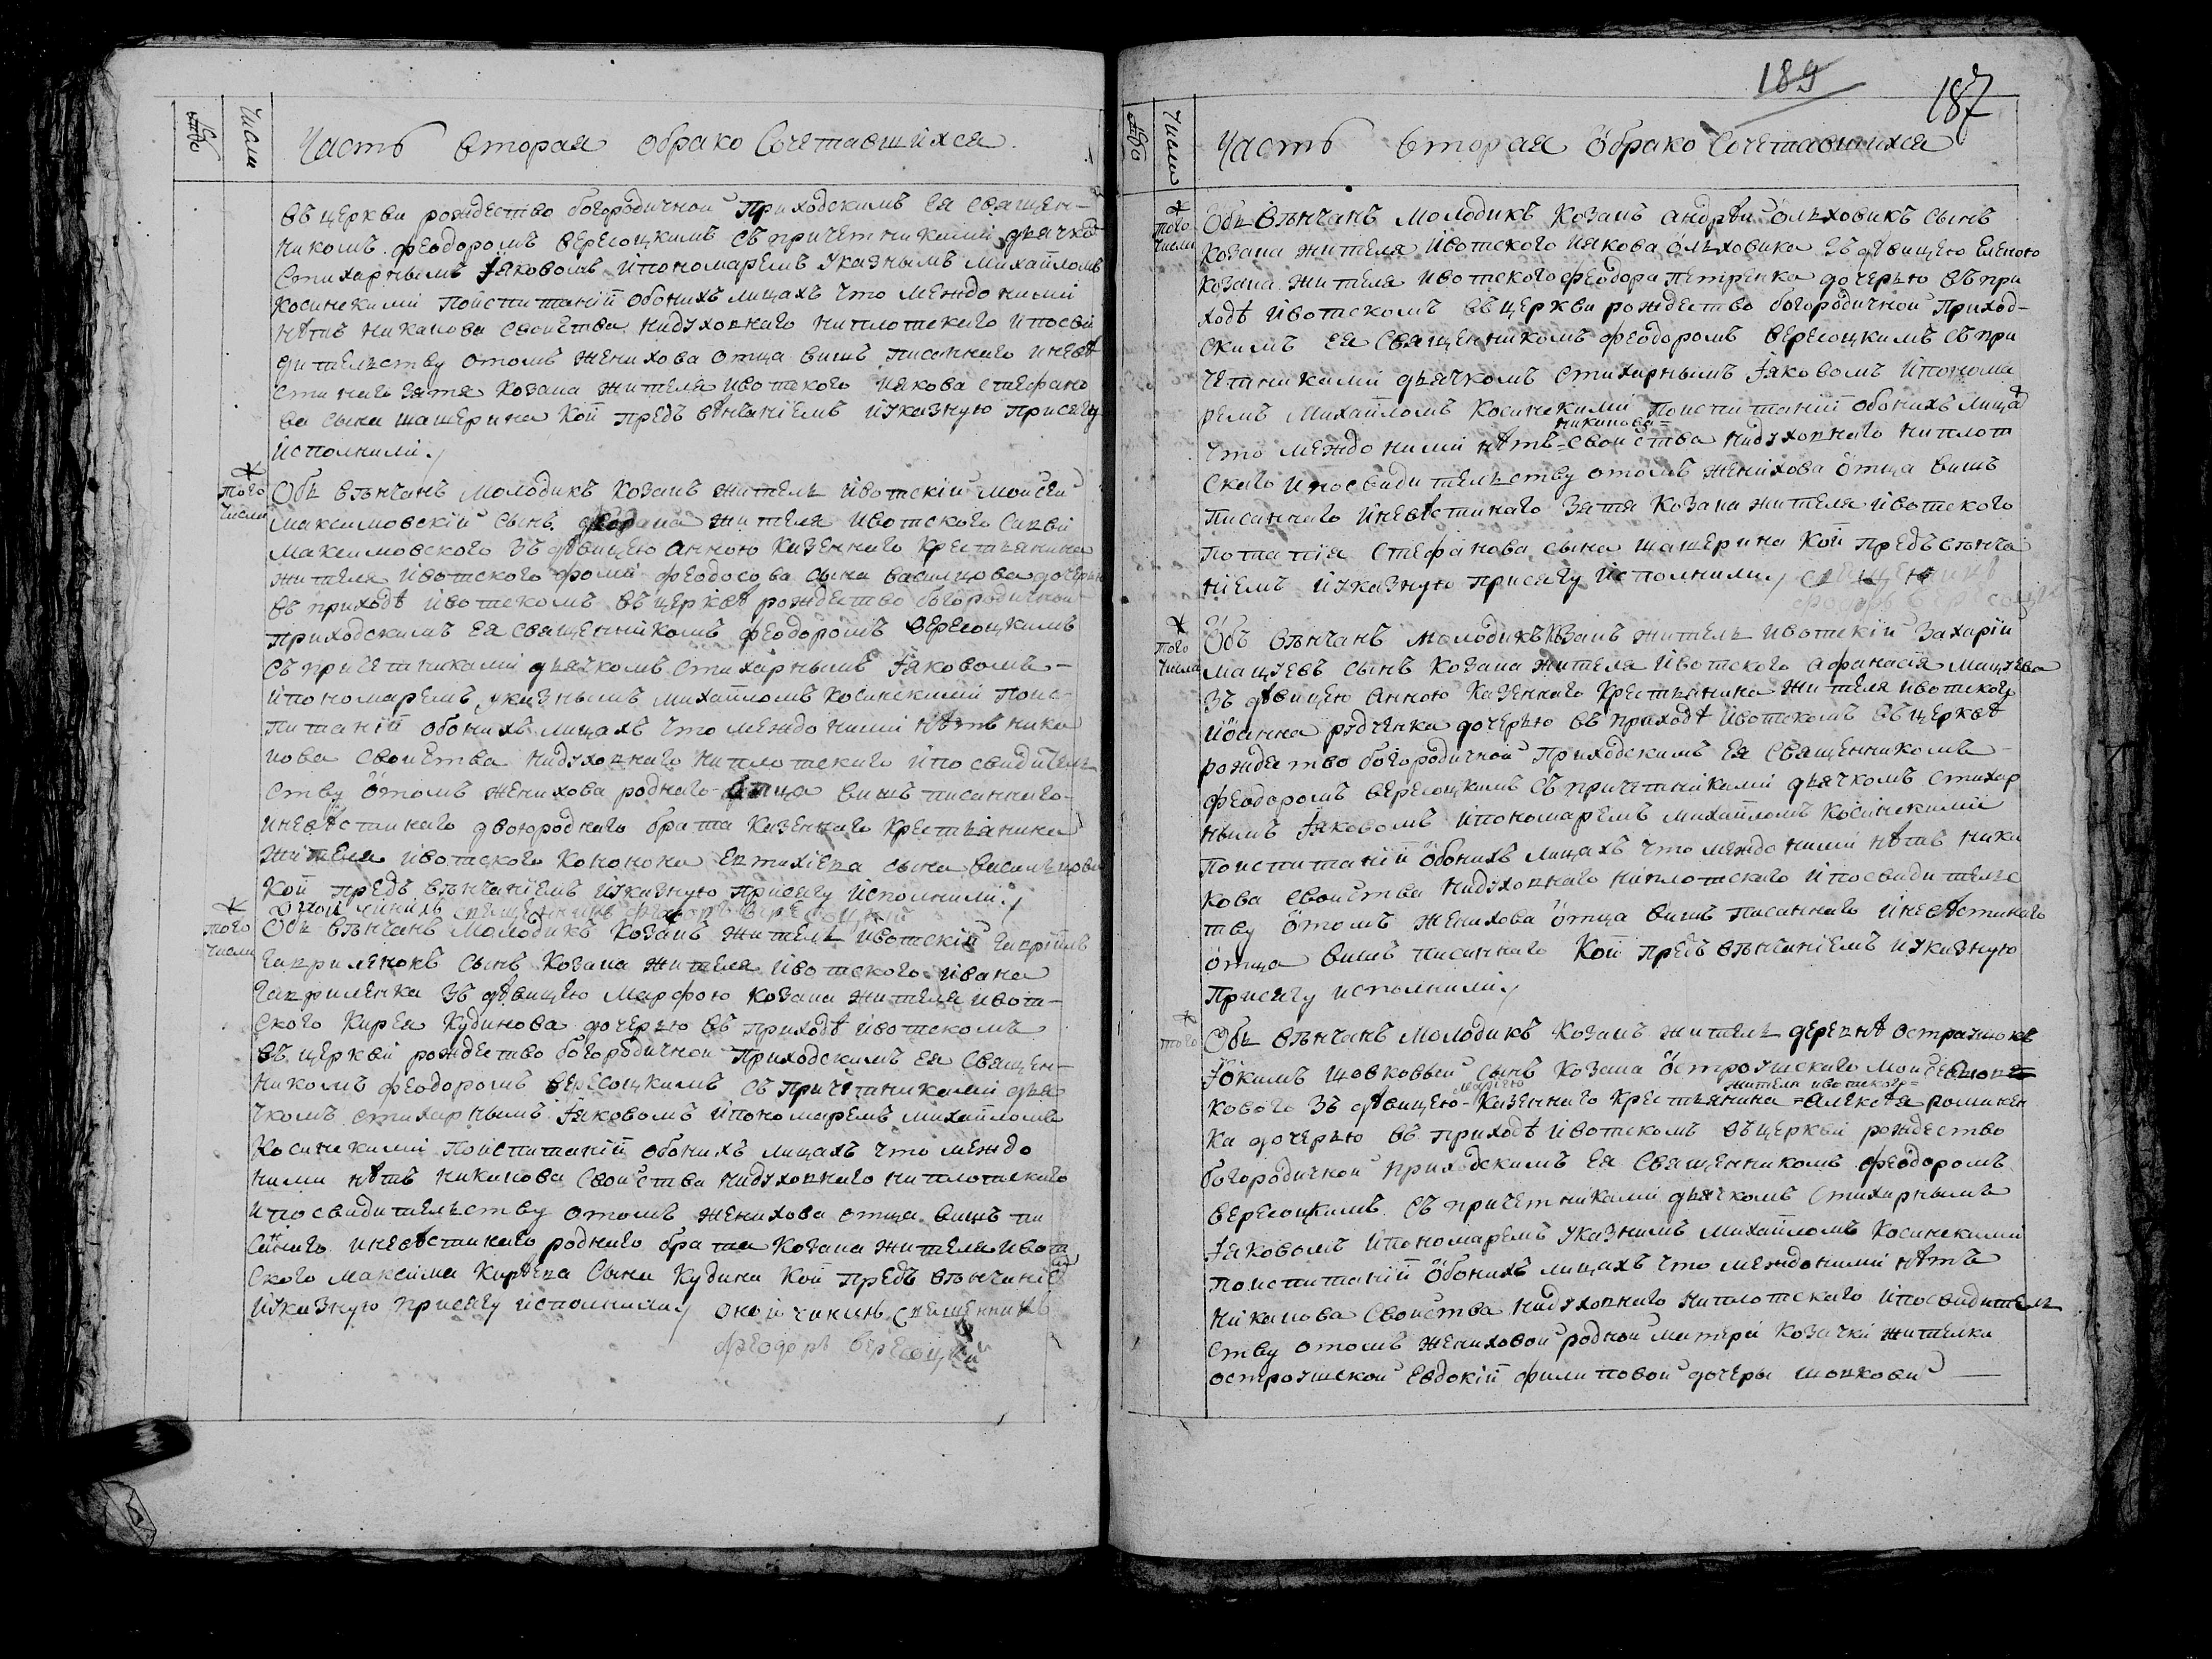 Числа
Часть вторая обрако Сочетавшихся
въ церкви рождество богородичной приходскимъ ея священ-
никомъ феодоромъ вересоцкимъ съ причетниками дячко
стихарнымъ Іяковомъ ипономаремъ указнымъ михайломъ
косинскими поиспитаніи обоихъ лицахъ что междо ними
нѣтъ никакова своиства нидуховнаго ниплотскаго ипосви
дителству отомъ женихова отца вишъ писаннаго иневѣ
стинаго зятя козака жителя ивотского иякова стефано
ва сина шашерина кои предъ вѣнчаніемъ иуказную присягу
исполнили
того
числа
Объ вѣнчанъ молодикъ козакъ жителъ ивотскій моисеи
максимовскій сынъ козака жителя ивотского савви
максимовского зъ дѣвицею анною казенного крестьянина
жителя ивотского фоми феодосова сына василцова дочерю
въ приходѣ ивотскомъ въ церквѣ рождество богородичной
приходскимъ ея священникомъ феодоромъ вересоцкимъ
съ причетниками дячкомъ стихарнымъ Іяковомъ
ипономаремъ указнымъ михайломъ косинскими поис-
питаніи обоихъ лицахъ что междо ними нѣтъ ника
кова своиства нидуховнаго ниплотскаго ипосвидител
ству отомъ женихова родного отца вишъ писаннаго
иневѣстинаго двоюродного брата казенного крестянина
жителя ивотского конона евтихіева сына василцова
кои предъ вѣнчаніемъ иуказную присягу исполнили
оной чинилъ священникъ феодоръ вересоцкій
того
числа
Объ вѣнчанъ молодикъ козакъ жителъ ивотскій гавріилъ
гавриленокъ сынъ козака жителя ивотского ивана
гавриленка зъ дѣвицею марфою козака жителя ивот-
ского кирея кудинова дочерью въ приходѣ ивотскомъ
въ церкви рождество богородичной приходскимъ ея священ-
никомъ феодоромъ вересоцкимъ съ причетниками дя
чкомъ стихарнымъ Іяковомъ ипономаремъ михайломъ
косинскими поиспитаніи обоихъ лицахъ что междо
ними нѣтъ никакова своиства нидуховнаго ниплотскаго
ипосвидителству отомъ женихова отца вишъ пи
саннаго иневѣстинаго родного брата козака жителя ивот
ского максима кирѣева сына кудина кои предъ вѣнчаніе
иуказную присягу исполнили оной чинилъ священникъ
феодоръ вересоцкій
189
187
Числа
Часть вторая обрако Сочетавшихся
того
числа
Объ вѣнчанъ молодикъ козакъ андрѣи олховикъ сынъ
козака жителя ивотского иякова олховика зъ дѣвицею еленою
козака жителя ивотского феодора петренка дочерью въ при
ходѣ ивотскомъ въ церкви рождество богородичной приход-
скимъ ея священникомъ феодоромъ вересоцкимъ съ при
четниками дячкомъ стихарнымъ Іяковомъ ипонома
ремъ михайломъ косинскими поиспитаніи обоихъ лица
никакова
что междо ними нѣтъ своиства нидуховнаго ниплот
скаго ипосвидителству отомъ женихова отца вишъ
писаннаго иневѣстинаго зятя козака жителя ивотского
потапія стефанова сына шашерина кои предъ вѣнча
ніемъ иуказную присягу исполнили священникъ
феодоръ вересоцкій
того
числа
Объ вѣнчанъ молодикъ козакъ жителъ ивотскій захарій
мацуевъ сынъ козака жителя ивотского афанасія мацуева
зъ дѣвицею анною казенного крестьянина жителя ивотского
иоанна рудченка дочерью въ приходѣ ивотскомъ въ церквѣ
рождество богородичной приходскимъ ея священникомъ
феодоромъ вересоцкимъ съ причетниками дячкомъ стихар
нымъ Іяковомъ ипономаремъ михайломъ косинскими
поиспитаніи обоихъ лицахъ что междо ними нѣтъ ника
кова своиства нидуховнаго ниплотскаго ипосвидителс
тву отомъ женихова отца вишъ писаннаго иневѣстинаго
отца вишъ писанного кои предъ вѣнчаніемъ иуказную
присягу исполнили
того
Объ вѣнчанъ молодикъ козакъ жителъ деревнѣ
Іокимъ шовковый сынъ козака остроушского моисея шов
мариею жителя ивотского
кового зъ дѣвицею казенного крестьянина алексѣя романен
ка дочерью въ приходѣ ивотскомъ въ церкви рождество
богородичной приходскимъ ея священникомъ феодоромъ
вересоцкимъ съ причетниками дячкомъ стихарнымъ
Іяковомъ ипономаремъ указнимъ михайломъ косинскими
поиспитаніи обоихъ лицахъ что междо ними нѣтъ
никакова своиства нидуховнаго ниплотскаго ипосвидител
ству отомъ жениховой родной матери козачки жителки
остроушской евдокіи филиповой дочеры шовковй